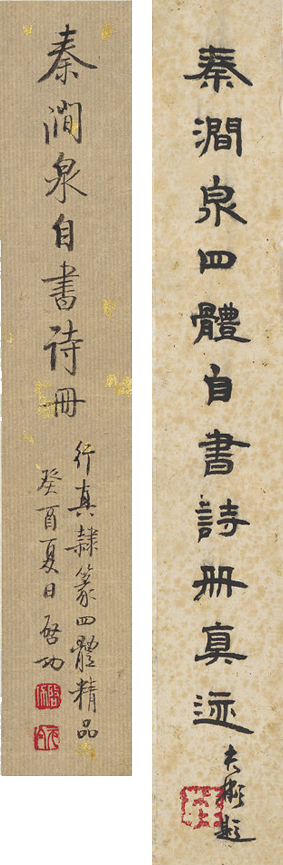 秦澗泉自書詩冊
行真隸篆四體精品
癸酉夏日啓功
秦澗泉四體自書詩冊真迹
題